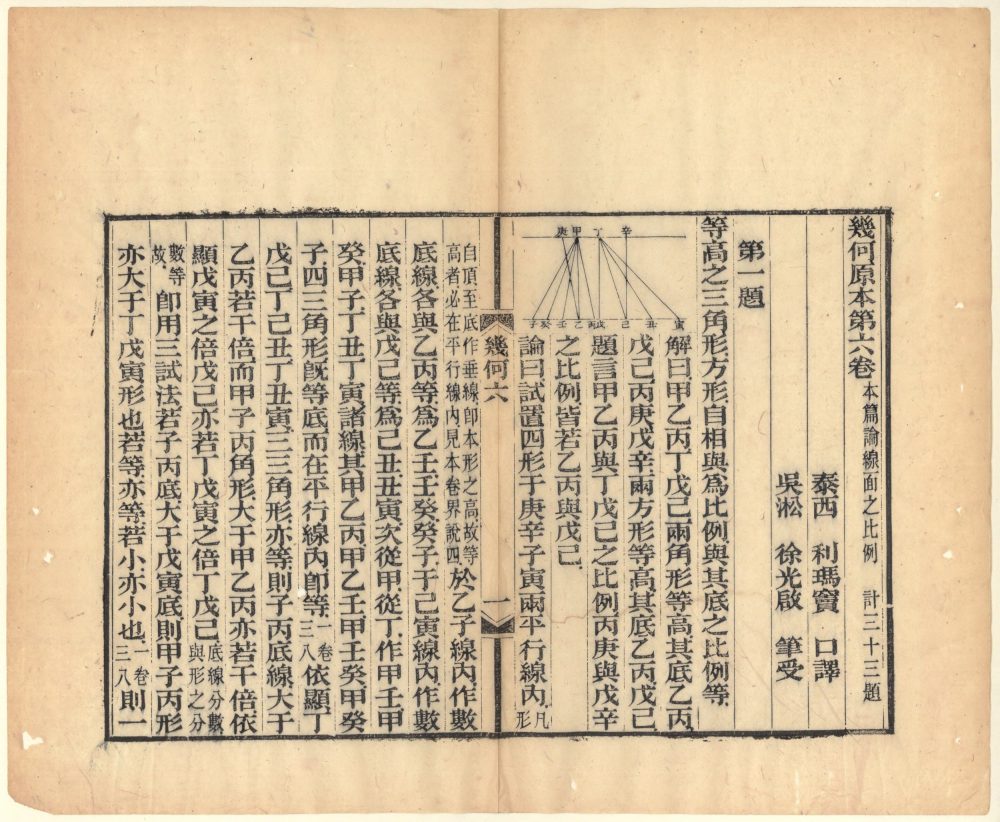 幾何原本第六卷 本篇論線面之比例 計三十三題
泰西 利瑪竇 口譯
吳淞 徐光啟 筆受
第一題
等高之三角形方形自相與爲比例與其底之比例等
庚甲 丁 辛
子癸 壬 乙丙戊 己 丑 寅
解曰甲乙丙丁戊己兩角形等高其底乙丙
戊己丙庚戊辛兩方形等高其底乙丙戊己
題言甲乙丙與丁戊己之比例丙庚與戊辛
之比例皆若乙丙與戊己
論曰試置四形于庚辛子寅兩平行線內凡形
幾何六 一
自頂至底作垂線卽本形之高故等高者必在平行線內見本卷界說四於乙子線內作數
底線各與乙丙等爲乙壬壬癸癸子于己寅線內作數
底線各與戊己等爲己丑丑寅次從甲從丁作甲壬甲
癸甲子丁丑丁寅諸線其甲乙丙甲乙壬甲壬癸甲癸
子四三角形旣等底而在平行線內卽等一卷三八依顯丁
戊己丁己丑丁丑寅三三角形亦等則子丙底線大于
乙丙若干倍而甲子丙角形大于甲乙丙亦若干倍依
顯戊寅之倍戊己亦若丁戊寅之倍丁戊己底線分數與形之分
數等故卽用三試法若子丙底大于戊寅底則甲子丙形
亦大于丁戊寅形也若等亦等若小亦小也一卷三八則一